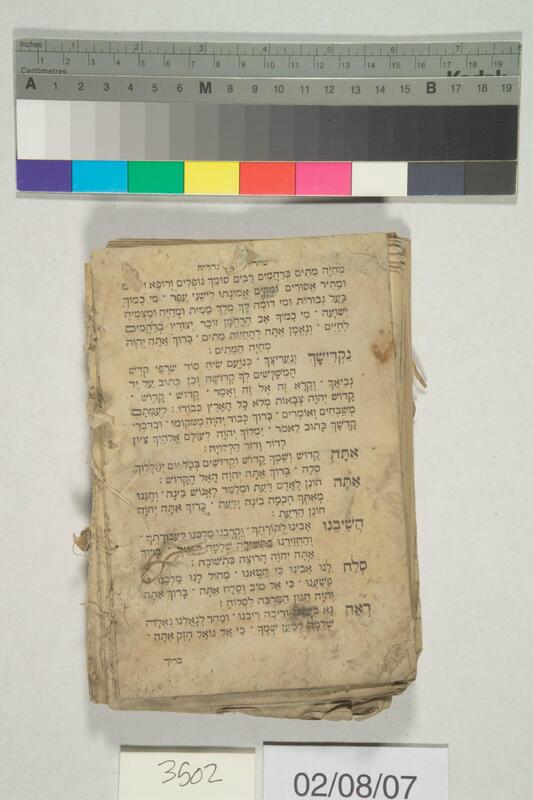 Inches 1 2 3 4 5 6 7 8
Centimetres 1 2 3 4 5 6 7 8 9 10 11 12 13 14 15 16 17 18 19
Kodak
A 1 2 3 4 5 6 M 8 9 10 11 12 13 14 15 B 17 18 19
שחרית
מְחַיֶּה מֵתִים בְּרַחֲמִים רַבִּים סוֹמֵךְ נוֹפְלִים וְרוֹפֵא
וּמַתִּיר אֲסוּרִים וּמְקַיֵּם אֱמוּנָתוֹ לִישֵׁנֵי עָפָר · מִי כָמוֹךָ
בַּעַל גְּבוּרוֹת וּמִי דּוֹמֶה לָּךְ מֶלֶךְ מֵמִית וּמְחַיֶּה וּמַצְמִיחַ
יְשׁוּעָה · מִי כָמוֹךָ אָב הָרַחֲמָן זוֹכֵר יְצוּרָיו בְּרַחֲמִים
לְחַיִּים · וְנֶאֱמָן אַתָּה לְהַחֲיוֹת מֵתִים · בָּרוּךְ אַתָּה יְהֹוָה
מְחַיֵּה הַמֵּתִים :
נַקְדִּישָׁךְ וְנַעֲרִיצָךְ · כְּנוֹעַם שִׂיחַ סוֹד שַׂרְפֵי קוֹדֶשׁ
הַמְשַׁלְּשִׁים לְךָ קְדוּשָּׁה וְכֵן כָּתוּב עַל יַד
נְבִיאָךְ · וְקָרָא זֶה אֶל זֶה וְאָמַר · קָדוֹשׁ · קָדוֹשׁ ·
קָדוֹשׁ יְהֹוָה צְבָאוֹת מְלֹא כָל הָאָרֶץ כְּבוֹדוֹ : לְעֻמָּתָם
מְשַׁבְּחִים וְאוֹמְרִים · בָּרוּךְ כְּבוֹד יְהֹוָה מִמְּקוֹמוֹ · וּבְדִבְרֵי
קָדְשָׁךְ כָּתוּב לֵאמֹר · יִמְלוֹךְ יְהֹוָה לְעוֹלָם אֱלֹהַיִךְ צִיּוֹן
לְדוֹר וָדוֹר הַלְלוּיָהּ :
אַתָּה קָדוֹשׁ וְשִׁמְךָ קָדוֹשׁ וּקְדוֹשִׁים בְּכָל יוֹם יְהַלְלוּךָ
סֶּלָה · בָּרוּךְ אַתָּה יְהֹוָה הָאֵל הַקָּדוֹשׁ :
אַתָּה חוֹנֵן לְאָדָם דַּעַת וּמְלַמֵּד לֶאֱנוֹשׁ בִּינָה · וְחָנֵּנוּ
מֵאִתְּךָ חָכְמָה בִּינָה וָדַעַת · בָּרוּךְ אַתָּה יְהֹוָה
חוֹנֵן הַדָּעַת :
הֲשִׁיבֵנוּ אָבִינוּ לְתוֹרָתֶךָ · וְקָרְבֵנוּ מַלְכֵּנוּ לַעֲבוֹדָתֶךָ ·
וְהַחֲזִירֵנוּ בִּתְשׁוּבָה שְׁלֵמָה בָּרוּךְ
אַתָּה יְהֹוָה הָרוֹצֶה בִּתְשׁוּבָה :
סְלַח לָנוּ אָבִינוּ כִּי חָטָאנוּ · מְחוֹל לָנוּ מַלְכֵּנוּ
פָשָׁעְנוּ · כִּי אֵל טוֹב וְסַלָּח אַתָּה · בָּרוּךְ אַתָּה
יְהֹוָה חַנּוּן הַמַּרְבֶּה לִסְלוֹחַ :
רְאֵה נָא וְרִיבָה רִיבֵנוּ · וּמַהֵר לְגָאֳלֵנוּ גְּאֻלָּה
שְׁלֵמָה לְמַעַן שְׁמֶךָ · כִּי אֵל גּוֹאֵל חָזָק אָתָּה ·
ברוך
3502
02/08/07